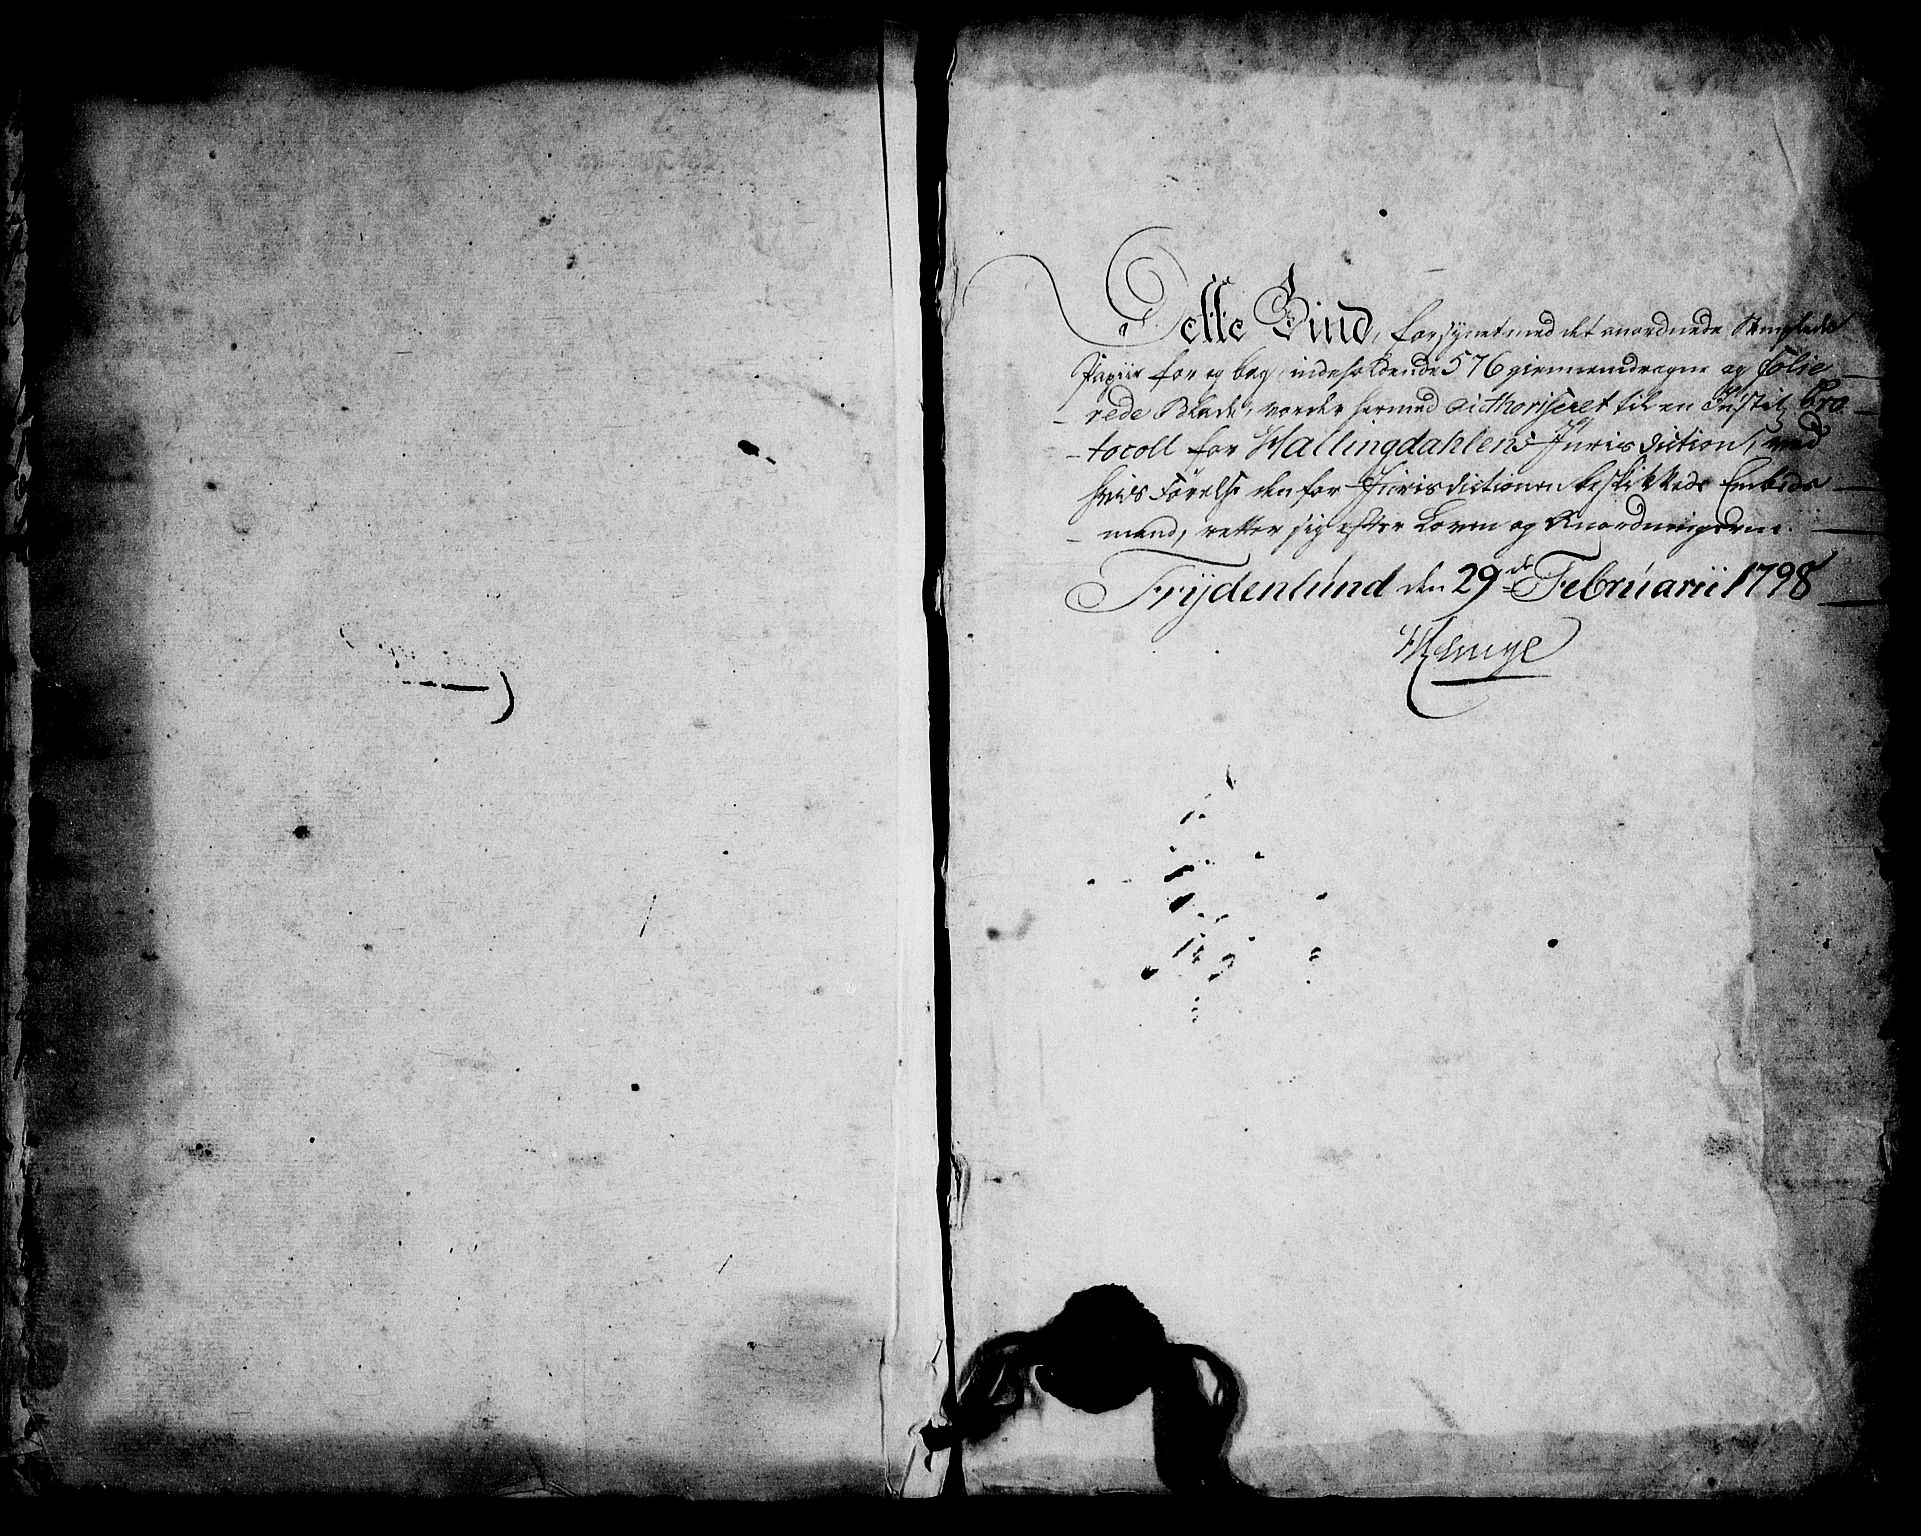 Dette Bind, forsynet med det anordnede Stemplede
Papiir for og bag, indeholdende 576 giennemdragne og Folie
rede Blade, vorder hermed authoriseret til en Pro
tocoll for Hallingdahlens Jurisdiction, ved
hvis Førelse den for Jurisdictionen beskikkede Embeds
mand, retter sig efter Loven og Anordningerne.
Frydenlund den 29de Februarii 1798